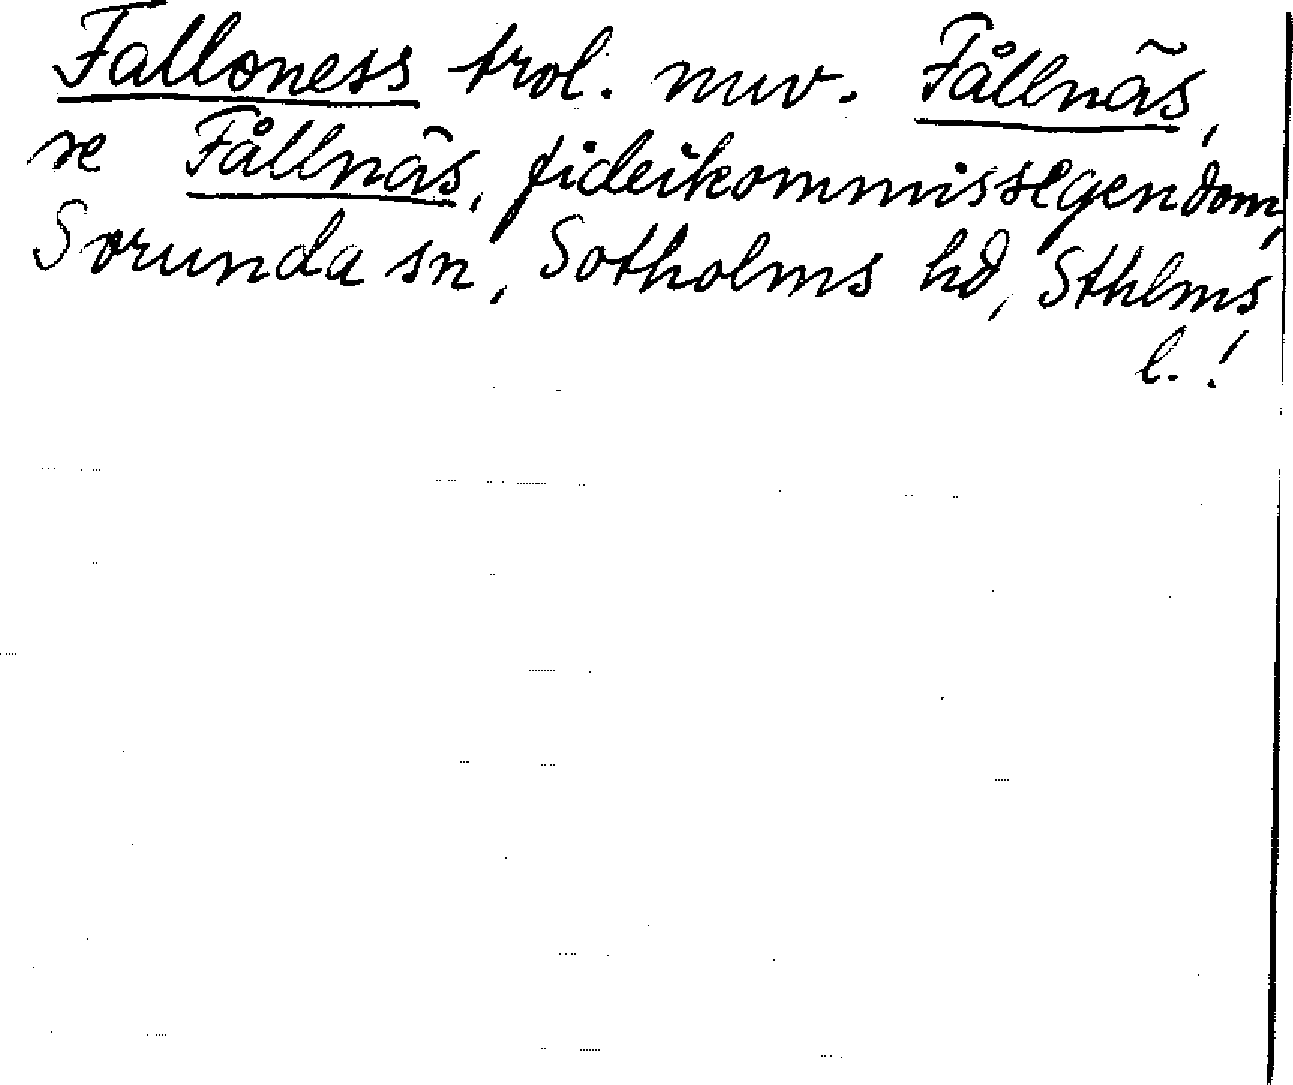 Falloness trol. nuv. Fållnäs,
se Fållnäs, fideikommissegendom,
Sorunda sn, Sotholms hd, Sthlms
l.!